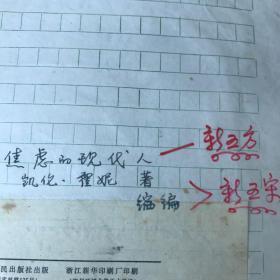 焦虑的现代人 新五方
凯伦·霍妮 著
编编 新五宋
民出版社出版 浙江新华印刷厂印刷